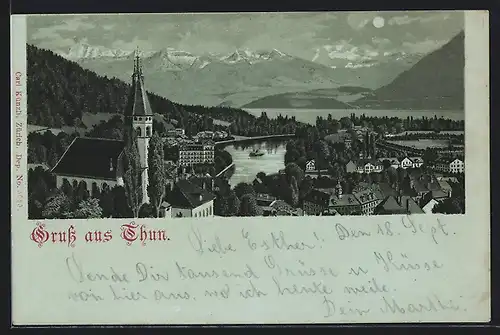 Gruß aus Thun.
Liebe Esther! Den 18. Sept.
Sende Dir tausend Grüsse u Küsse
von hier aus. wo ich heute weile.
Dein Marthi.
Carl Künzli, Zürich. Dep. No.